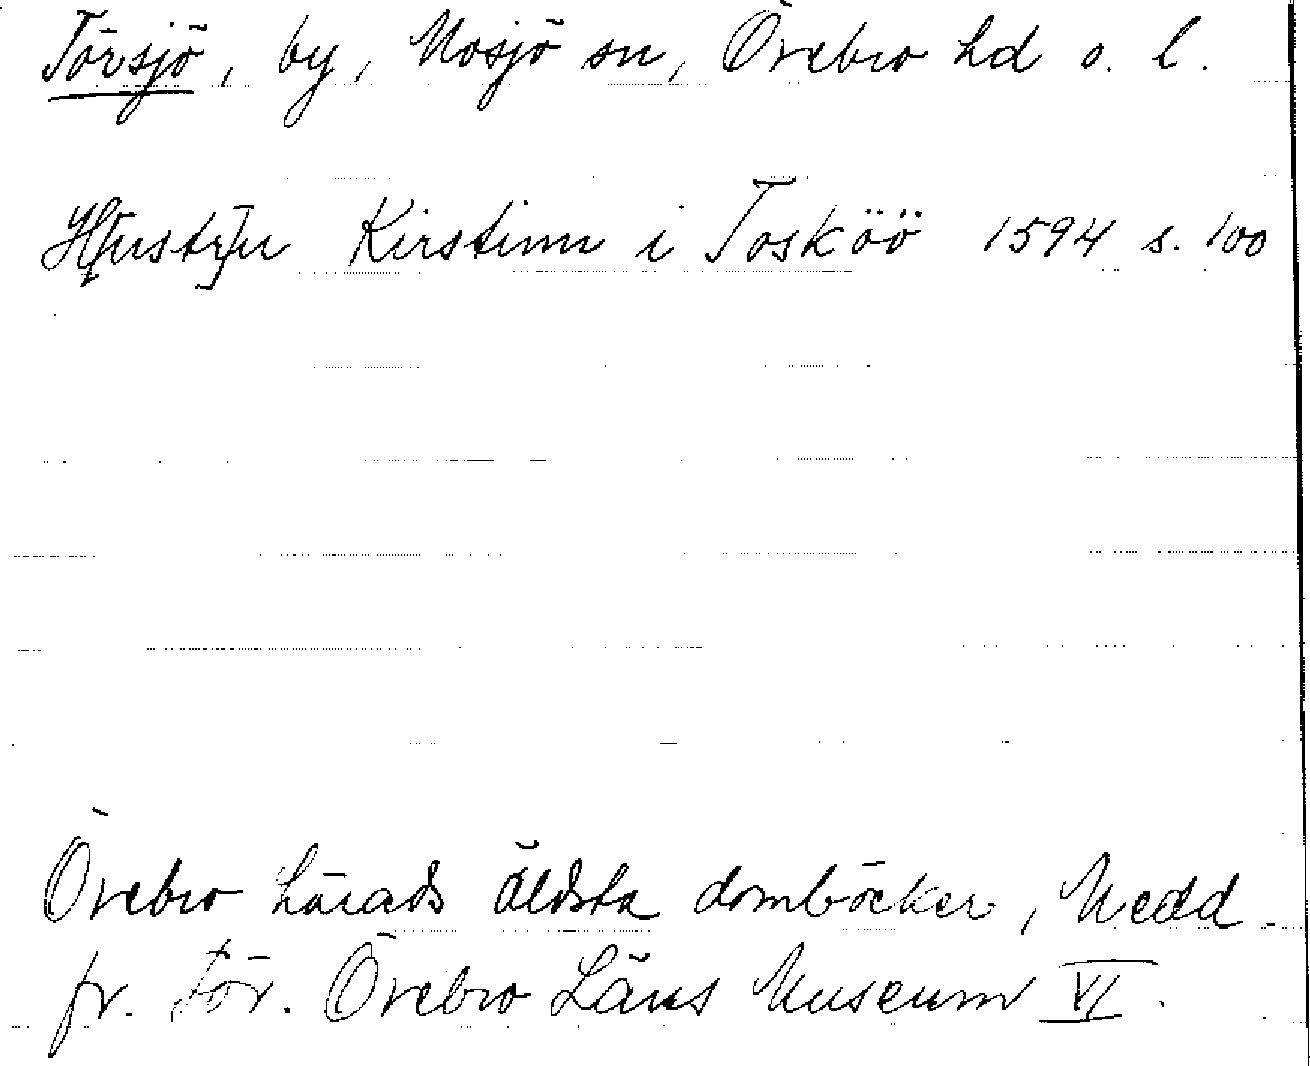 Törsjö, by, Mosjö sn, Örebro hd o. l.
H[ustr]u Kirstinn i Tosköö 1594 s. 100
Örebro härads äldsta domböcker, Medd.
fr. För. Örebro Läns Museum VI.